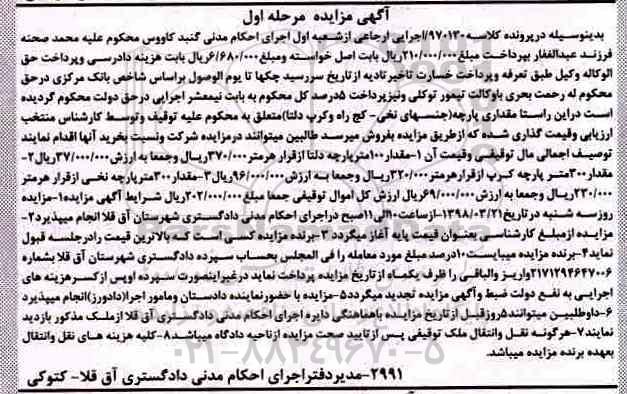 آگهی مزایده مرحله اول
بدینوسیله درپرونده کلاسه ۹۷۰۱۳۰/اجرایی ارجاعی ازشعبه اول اجرای احکام مدنی گنبد کاووس محکوم علیه محمد صحنه
فرزند عبدالغفار بپرداخت مبلغ ۲۱۰/۰۰۰/۰۰۰ریال بابت اصل خواسته ومبلغ ۶/۶۸۰/۰۰۰ریال بابت هزینه دادرسی وپرداخت حق
الوکاله وکیل طبق تعرفه وپرداخت خسارت تاخیرتادیه ازتاریخ سررسید چکها تا یوم الوصول براساس شاخص بانک مرکزی درحق
محکوم له رحمت بحری باوکالت تیمور توکلی ونیزپرداخت ۵درصد کل محکوم به بابت نیمعشر اجرایی درحق دولت محکوم گردیده
است دراین راستا مقداری پارچه(جنسهای نخی- کج راه وکرپ دلتا)متعلق به محکوم علیه توقیف وتوسط کارشناس منتخب
ارزیابی وقیمت گذاری شده که ازطریق مزایده بفروش میرسد طالبین میتوانند درمزایده شرکت ونسبت بخرید آنها اقدام نمایند
توصیف اجمالی مال توقیفی وقیمت آن ۱-مقدار۱۰۰مترپارچه دلتا ازقرار هرمتر۳۷۰/۰۰۰ریال وجمعا به ارزش۳۷/۰۰۰/۰۰۰ریال۲-
مقدار۳۰۰متر پارچه کرپ ازقرارهرمتر۳۲۰/۰۰۰ریال وجمعا به ارزش ۹۶/۰۰۰/۰۰۰ریال۳-مقدار۳۰۰مترپارچه نخی ازقرار هرمتر
۲۳۰/۰۰۰ریال وجمعا به ارزش ۶۹/۰۰۰/۰۰۰ریال ارزش کل اموال توقیفی جمعا مبلغ ۲۰۲/۰۰۰/۰۰۰ریال شرایط آگهی مزایده۱-مزایده
روزسه شنبه درتاریخ۱۳۹۸/۰۳/۲۱-ازساعت۱۰الی۱۱صبح دراجرای احکام مدنی دادگستری شهرستان آق قلا انجام میپذیرد۲-
مزایده ازمبلغ کارشناسی بعنوان قیمت پایه آغاز میگردد ۳-برنده مزایده کسی است که بالاترین قیمت رادرجلسه قبول
نماید۴-برنده مزایده میبایست۱۰درصد مبلغ مورد معامله را فی المجلس بحساب سپرده دادگستری شهرستان آق قلا بشماره
۲۱۷۱۲۹۴۶۴۷۰۰۶واریز والباقی را ظرف یکماه ازتاریخ مزایده پرداخت نماید درغیراینصورت سپرده اوپس ازکسرهزینه های
اجرایی به نفع دولت ضبط وآگهی مزایده تجدید میگردد۵-مزایده با حضورنماینده دادستان ومامور اجرا(دادورز)انجام میپذیرد
۶-داوطلبین میتوانند۵روزقبل ازتاریخ مزایده باهماهنگی دایره اجرای احکام مدنی دادگستری آق قلا ازملک مذکور بازدید
نمایند۷-هرگونه نقل وانتقال ملک توقیفی پس ازتایید صحت مزایده ازناحیه دادگاه میباشد۸-کلیه هزینه های نقل وانتقال
بعهده برنده مزایده میباشد.
۲۹۹۱-مدیردفتراجرای احکام مدنی دادگستری آق قلا- کتوکی
۰۲۱-۸۸۳۴۹۶۷۰-۵